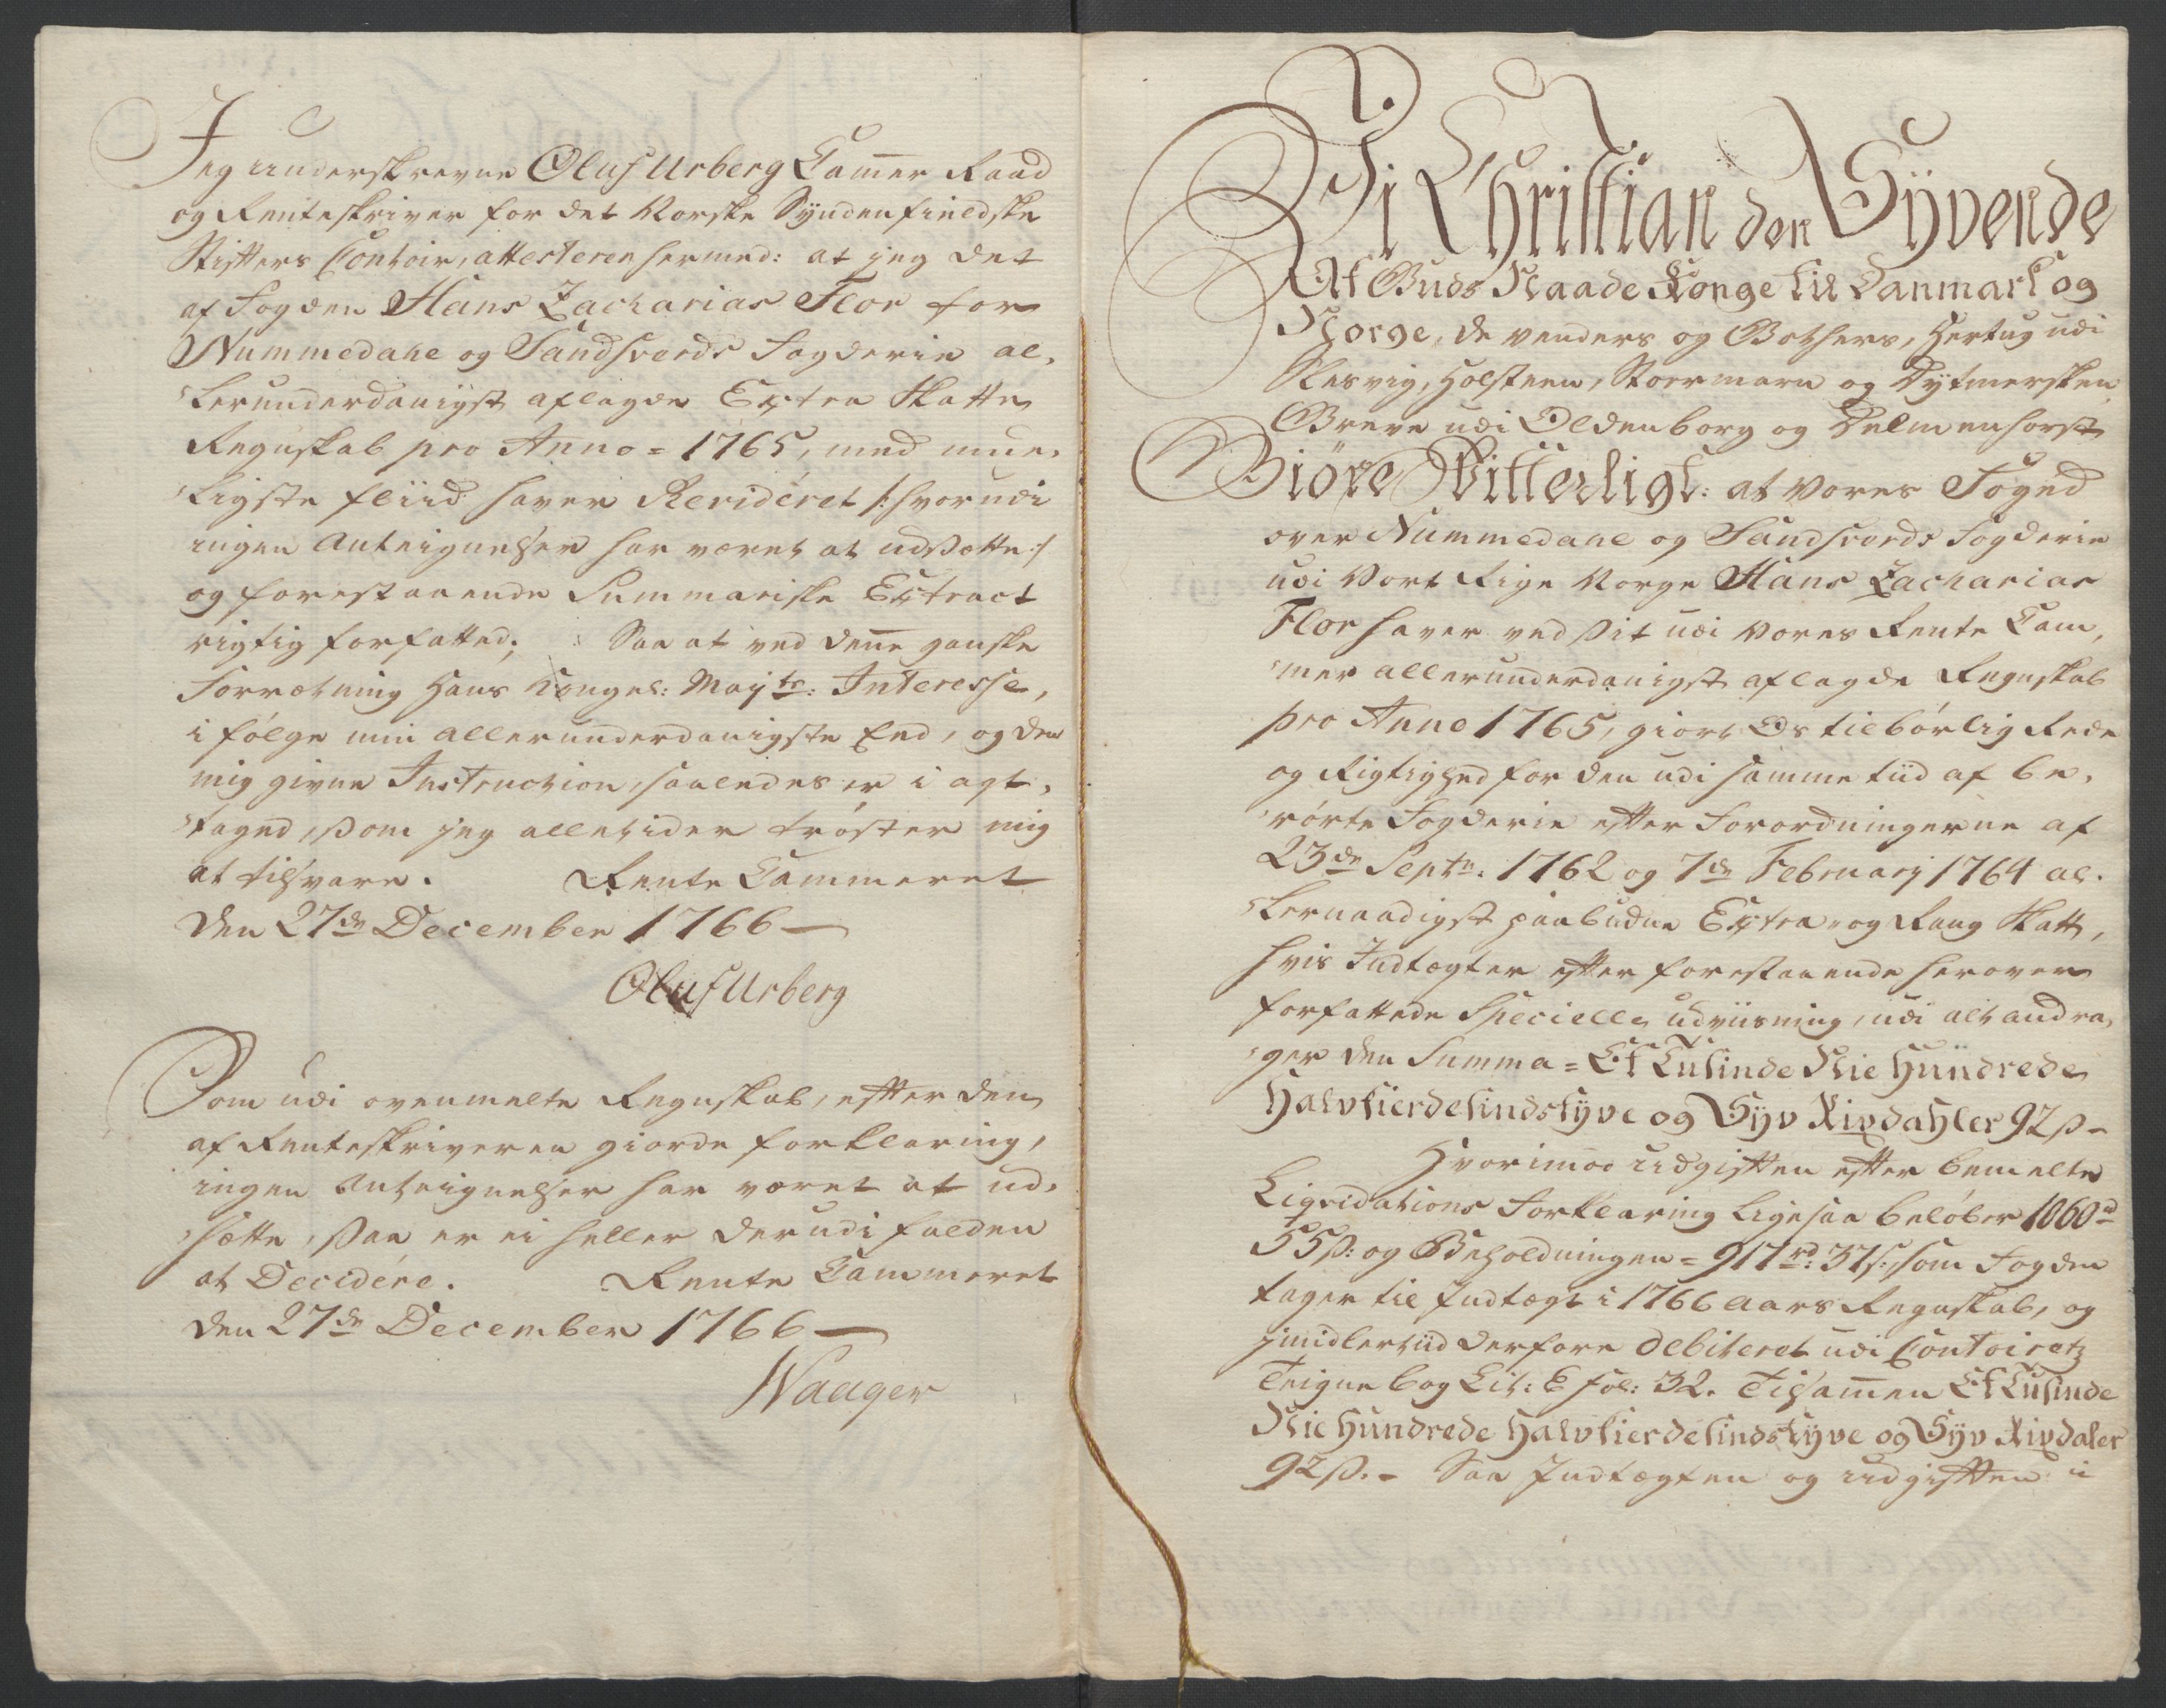 Jeg underskrevne Oluf Urberg Cam̄er Raad
og Renteskriver for det Norske Syndenfieldske
Stifters Contoir, attesterer hermed: at jeg det
af Fogden Hans Zacharias Flor for
Nummedahl og Sandsverds Fogderie al,
lerunderdanigst aflagde Extra Skatte
Regnskab pro Anno = 1765, med mue,
ligste fliid haver Revideret /: hvorudi
ingen Antegnelser har været at udsætte :/
og forestaaende Summariske Extract
rigtig forfatted; Saa at ved den̄e ganske
Forretning Hans Kongel: Mayts: Interesse,
i følge min allerunderdanigste Eed, og den
mig givne Instruction, saaledes er i agt,
taged, som jeg alletider trøster mig
at tilsvare. Rente Cammeret
den 27de December 1766 —
Oluf Urberg
Som udi ovenmelte Regnskab, efter den
af Renteskriveren giorde forklaring,
ingen Antegnelser har været at ud,
sætte, saa er ei heller derudi falden
at Decidére. Rente Cammeret
den 27de December 1766 —
Waager
Vi Christian den Syvende
Af Guds Naade Konge til Danmark og
Norge, de Venders og Gothers, Hertug udi
Slesvig, Holsteen, Stormarn og Dytmersken,
Greve udi Oldenborg og Delmenhorst
Giøre Vitterligt: at Vores Foged
over Nummedahl og Sandsverds Fogderie
udi Vort Rige Norge Hans Zacharias
Flor haver ved sit udi Vores Rente Cam,
mer allerunderdanigst aflagde Regnskab
pro Anno 1765, giort Os tilbørlig Rede
og Rigtighed for den udi samme tiid af be,
rørte Fogderie efter Forordningerne af
23de Septr: 1762 og 7de February 1764 al,
lernaadigst paabudne Extra- og Rang Skatt,
hvis Indtægter efter forestaaende herover
forfattede Specielle udviisning, udi alt andra,
ger den Summa = Et Tusinde Nie Hundrede
Halvfierdesindstyve og Syv Rixdahler 92 s. -
Hvorimod Udgiften efter bemelte
Liqvidations Forklaring ligesaa beløber 1060 rd
55 s: og Beholdningen = 917 rd: 37 s: som Fogden
tager til Indtægt i 1766 Aars Regnskab, og
jmidlertiid derfore debiteret udi Contoiretz
Tegnebog Lit: E fol: 32. Tilsam̄en Et Tusinde
Nie Hundrede Halvfierdesindstyve og Syv Rixdaler
92 s. - Saa Indtægten og Udgiften i